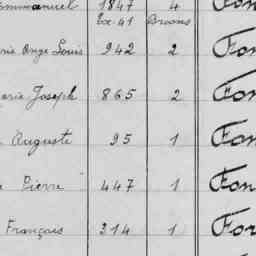 Emmanuel 1847 4 Fon
Ex. 41 Broons
rie Ange Louis 942 2 Fon
arie Joseph 865 2 Fon
Auguste 95 1 Fon
Pierre 447 1 Fon
François 314 1 For